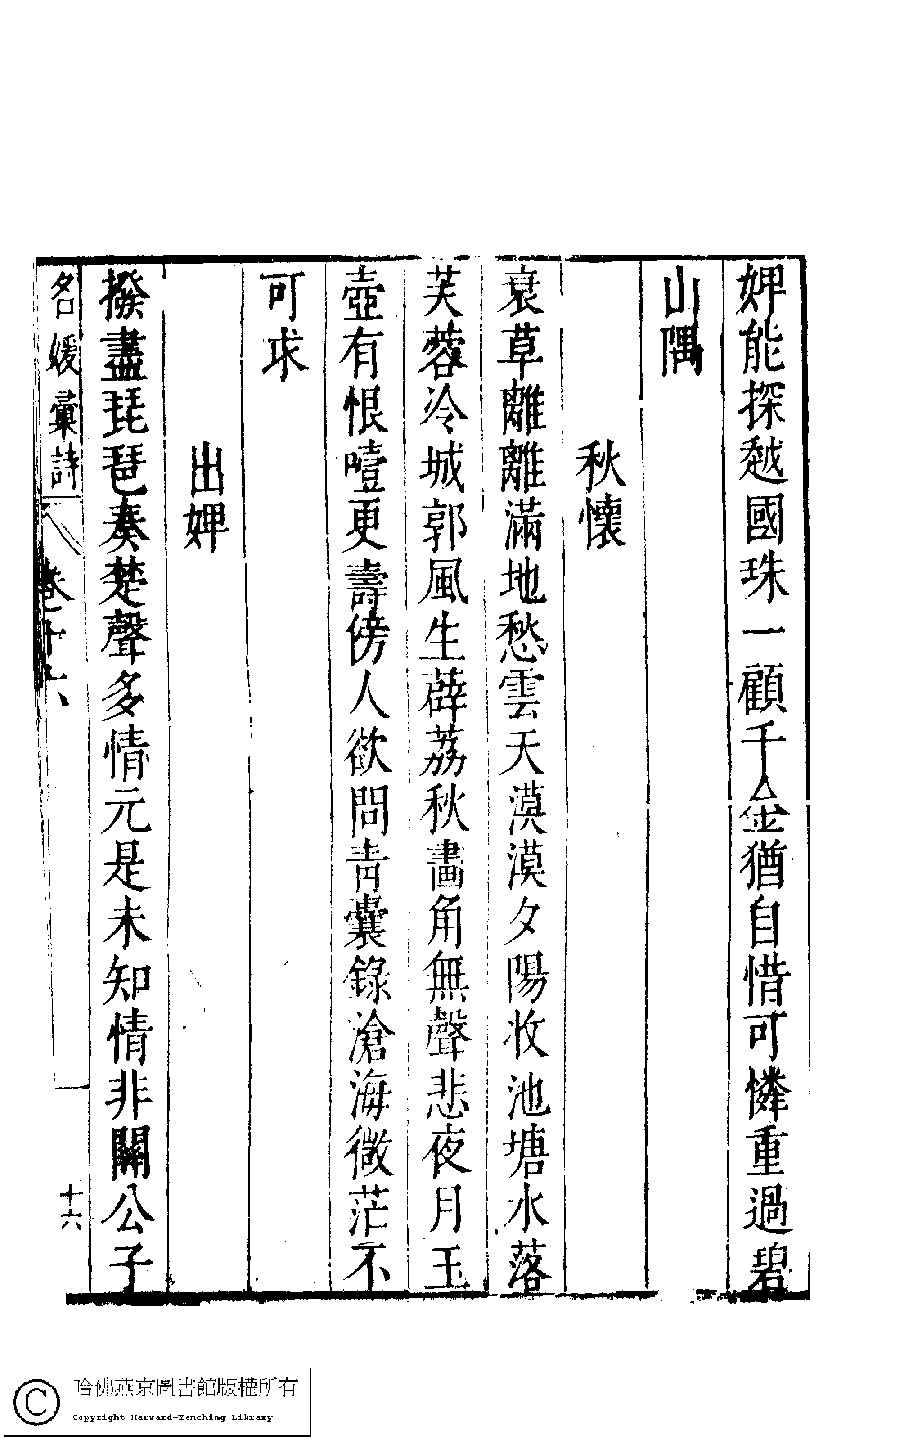 婢能探越國珠一顧千金猶自惜可憐重過碧
山隅
秋懷
衰草離離滿地愁雲天漠漠夕陽收池塘水落
芙蓉冷城郭風生薜荔秋畫角無聲悲夜月玉
壺有恨噎更壽傍人欲問青囊錄滄海微茫不
可求
出婢
撥盡琵琶奏楚聲多情元是未知情非關公子
名媛彙詩
卷十六
十六
哈佛燕京圖書館版權所有
Copyright Harvard-Yenching Library